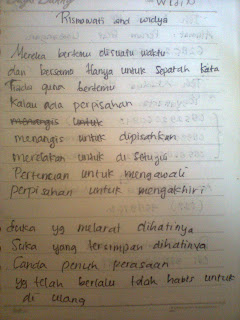 Riswawati and widya
Mereka bertemu disuatu waktu
dan bersama Hanya untuk sepatah kata
Tiada guna bertemu
Kalau ada perpisahan
menangis untuk
menangis untuk dipisahkan
merelakan untuk di
Pertemuan untuk mengawali
perpisahan untuk mengakhiri
Suka yg melarat dihatinya
Suka yang tersimpan dihatinya
Canda penuh perasaan
yg telah berlalu tdak habis untuk
di ulang